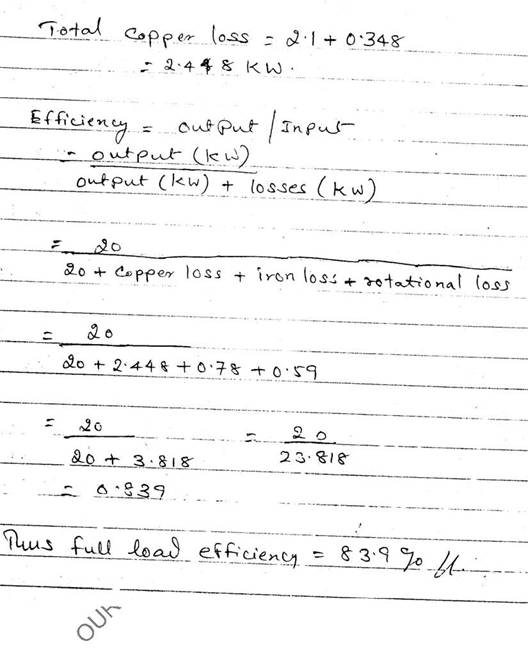 Total copper loss = 2.1 + 0.348
= 2.448 KW.
Efficiency = output / Input
= output (KW)
output (KW) + losses (KW)
= 20
20 + copper loss + iron loss + rotational loss
= 20
20 + 2.448 + 0.78 + 0.59
= 20 = 20
20 + 3.818 23.818
= 0.839
Thus full load efficiency = 83.9 %
OUR